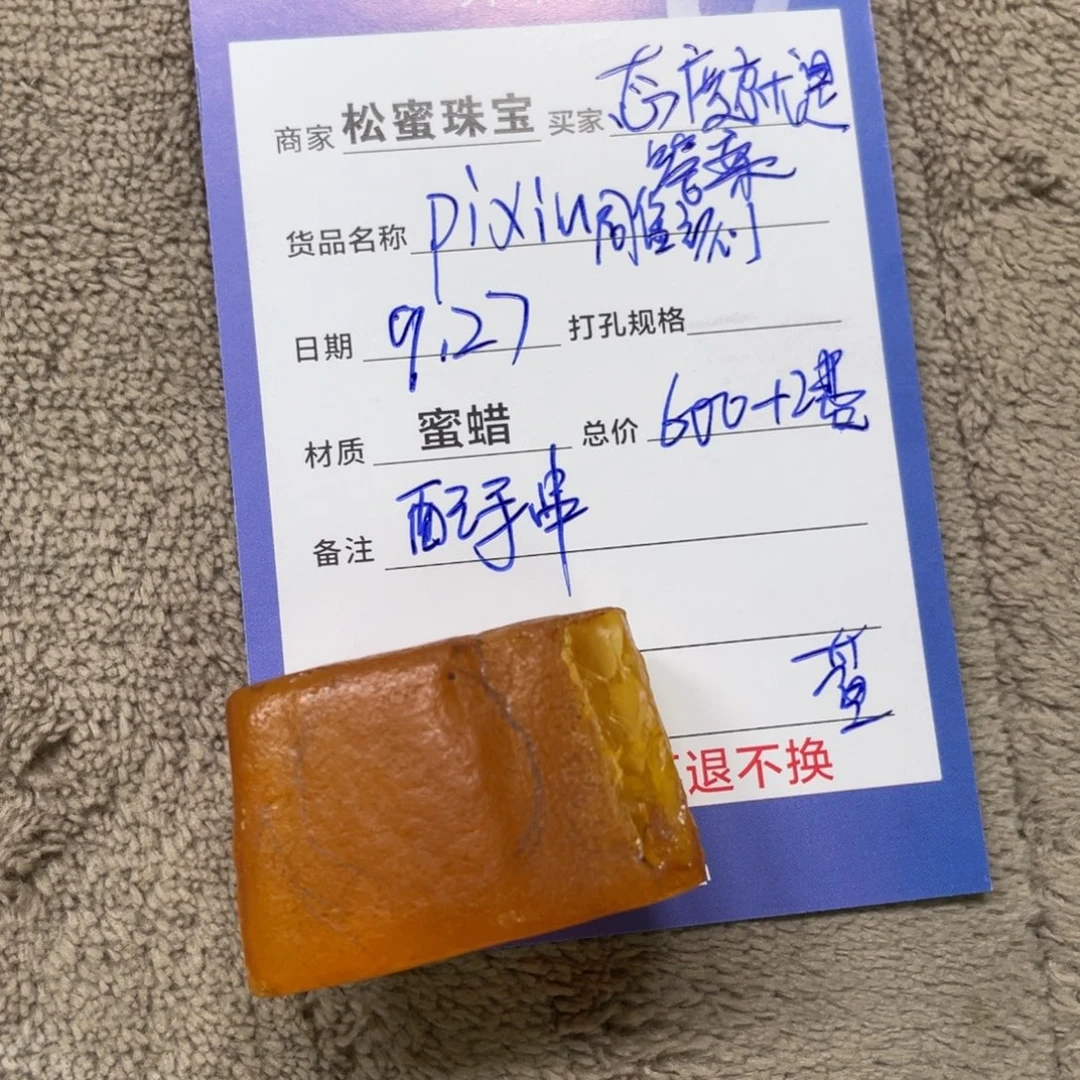 商家 松蜜珠宝 买家 态度就是
答案
货品名称 pixiu周值班们
日期 9.27 打孔规格
材质 蜜蜡 总价 600+2费
备注 配手串
退不换